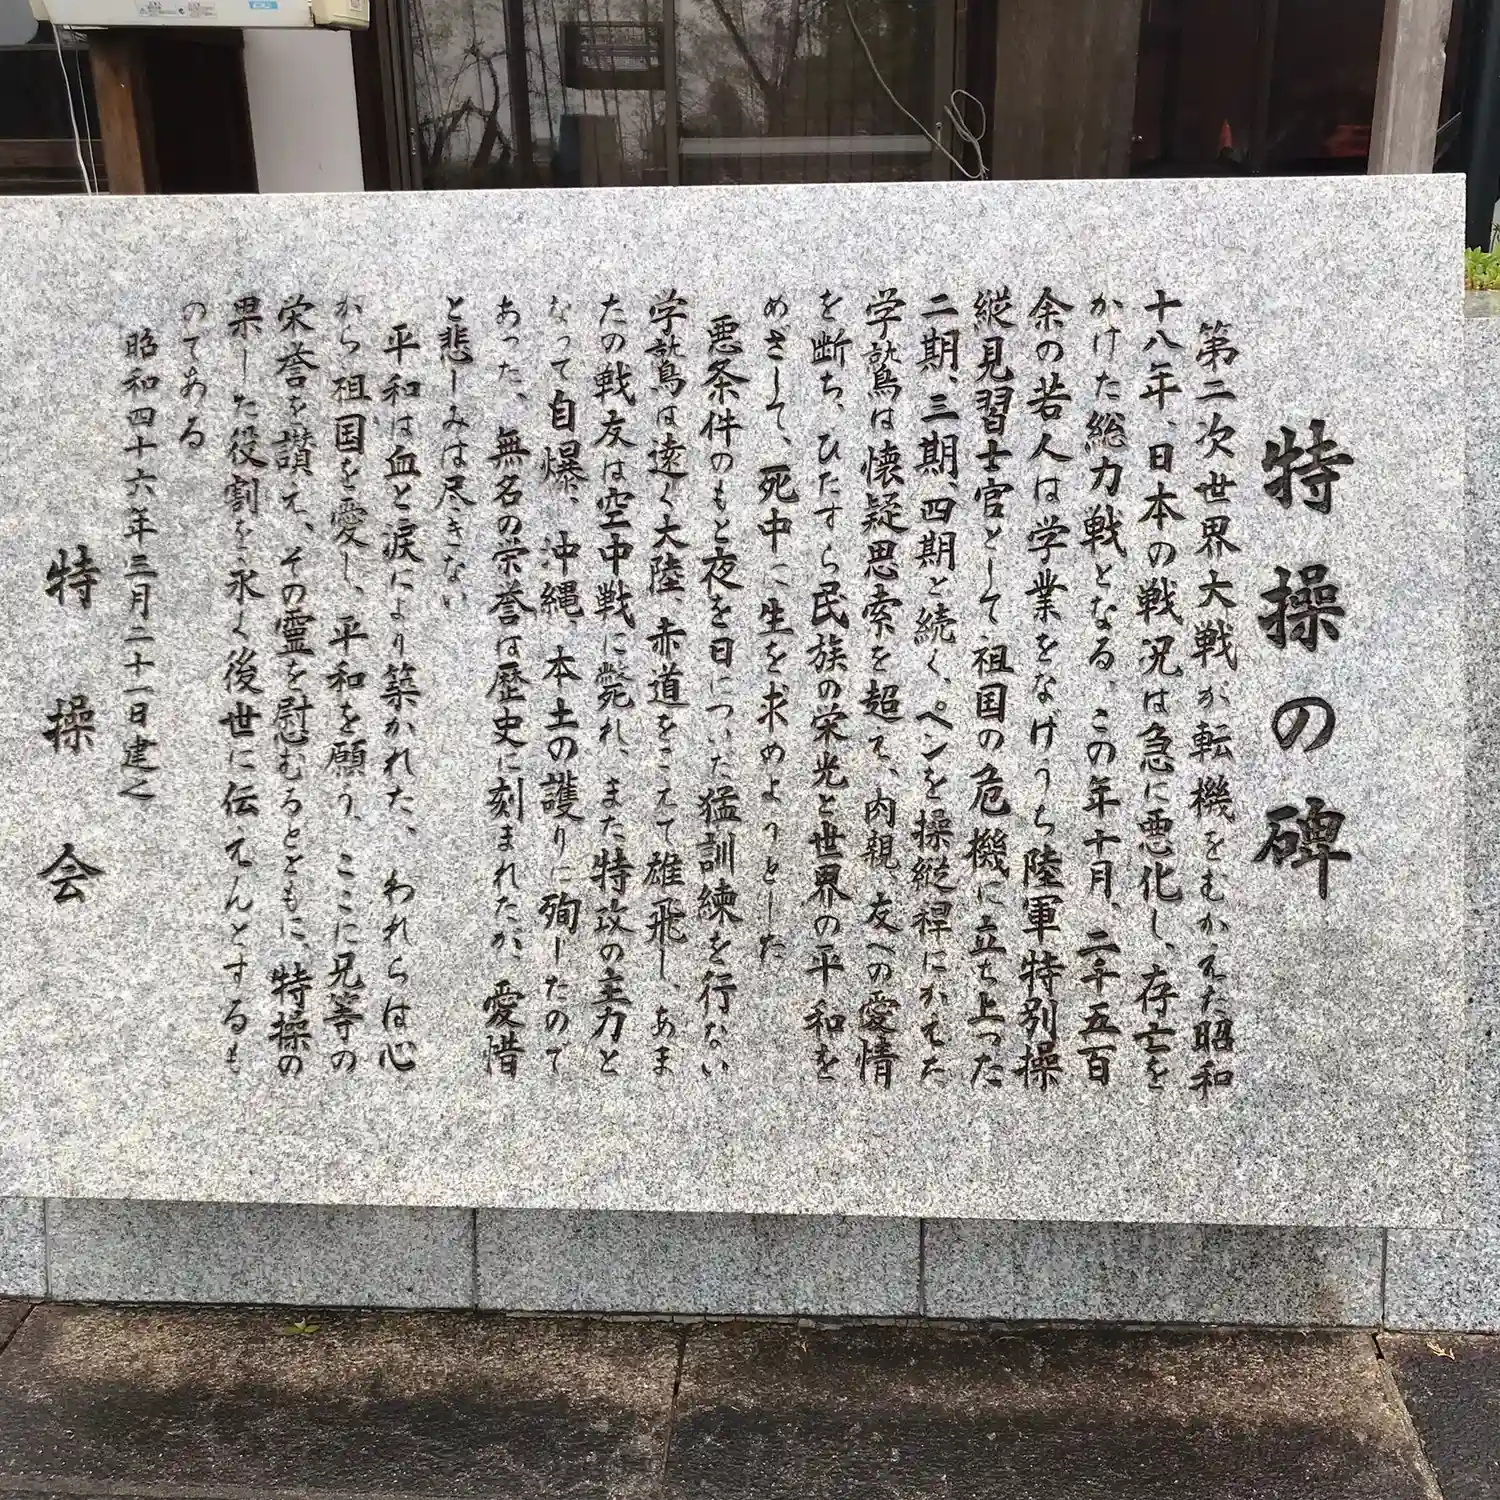 特操の碑
第二次世界大戦が転機をむかえた昭和
十八年、日本の戦況は急に悪化し、存亡を
かけた総力戦となる。この年十月、二千五百
余の若人は学業をなげうち陸軍特別操
縦見習士官として祖国の危機に立ち上った
二期、三期、四期と続く、ペンを操縦桿にかえた
学鷲は懐疑思索を超て、肉親、友への愛情
を断ち、ひたすら民族の栄光と世界の平和を
めざして、死中に生を求めようとした
悪条件のもと夜を日についだ猛訓練を行ない
学鷲は遠く大陸、赤道をこえて雄飛し、あま
たの戦友は空中戦に斃れ、また特攻の主力と
なって自爆、沖縄、本土の護りに殉したので
あった、無名の栄誉は歴史に刻まれたが、愛惜
と悲しみは尽きない
平和は血と涙により築かれた、われらは心
から祖国を愛し、平和を願う、ここに兄等の
栄誉を讃え、その霊を慰むるとともに、特操の
果した役割を永く後世に伝えんとするも
のてある
昭和四十六年三月二十一日建之
特操会